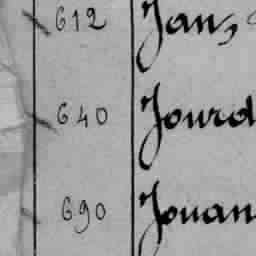 612 Jans
640 Jourd
690 Jouan